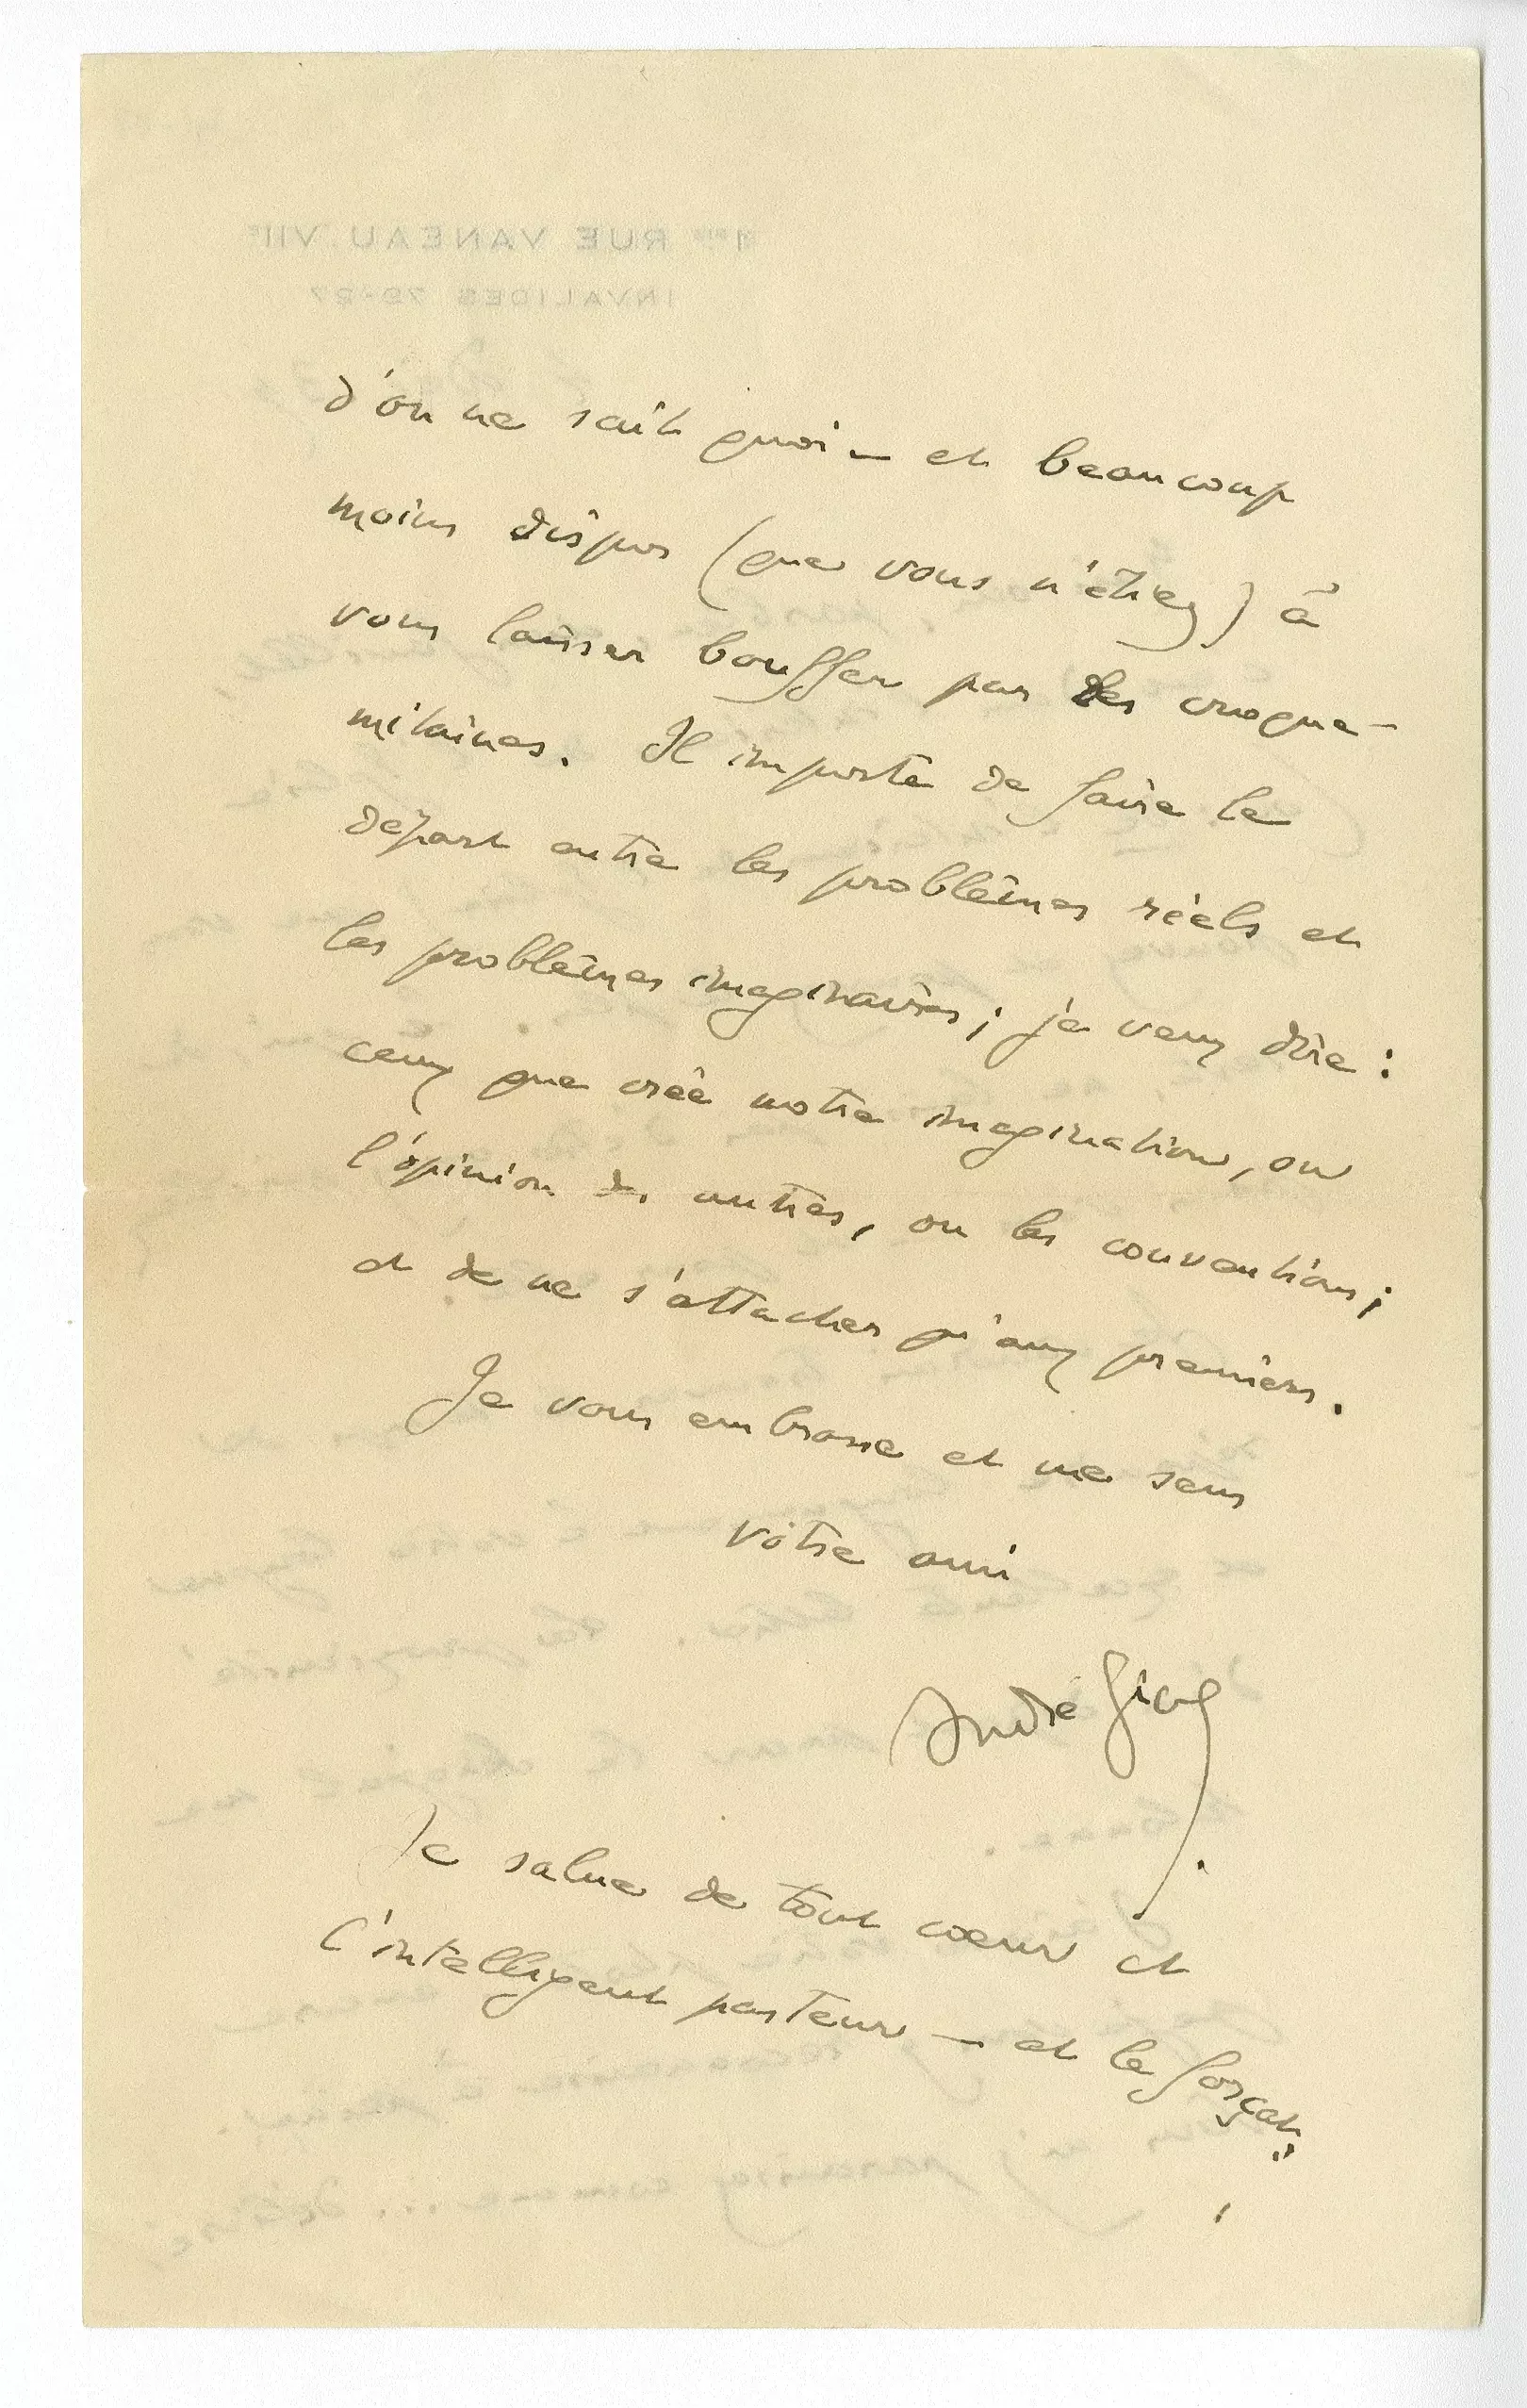 d'on ne sait quoi – et beaucoup
moins dispos (que vous n'étiez) à
vous laisser bouffer par des croque-
mitaines. Il importe de faire le
départ entre les problèmes réels et
les problèmes imaginaires ; je veux dire :
ceux que crée notre imagination, ou
l'opinion des autres, ou les conventions ;
et de ne s'attacher qu'aux premiers.
Je vous embrasse et me sens
votre ami
André Gide
Je salue de tout cœur et
l'intelligent pasteur – et le forçat
1 BIS RUE VANEAU. VIIE
INVALIDES 79-27